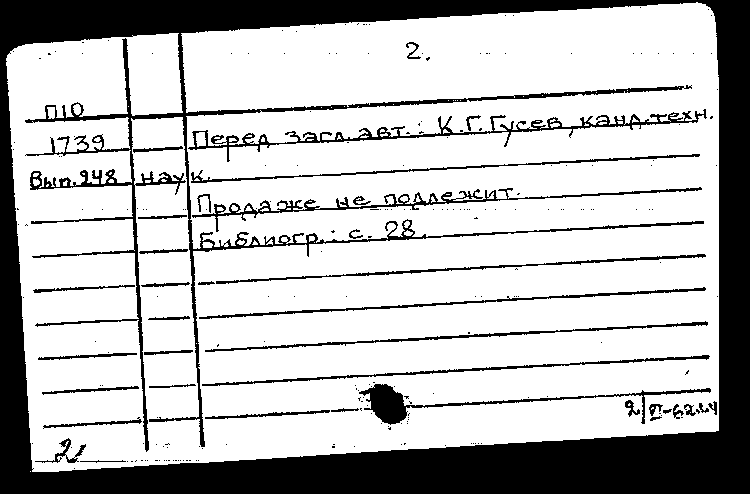 2.
П10
1739 Перед загл. авт.: К.Г.Гусев, канд.техн.
Вып.248 наук.
Продаже не подлежит.
Библиогр.: с. 28.
2